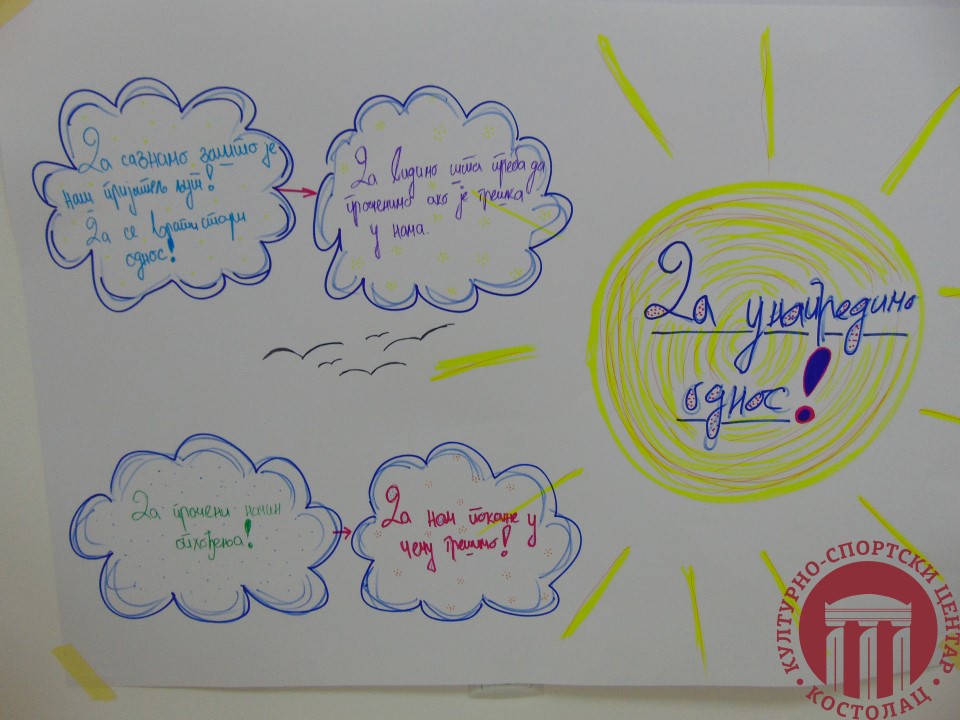 Да сазнамо зашто је
наш пријатељ љут!
Да се врати стари
однос!
Да видимо шта треба да
променимо ако је грешка
у нама.
Да унапредимо
однос!
Да промени начин
опхођења!
Да нам покаже у
чему грешимо!
КУЛТУРНО-СПОРТСКИ ЦЕНТАР
• КОСТОЛАЦ •